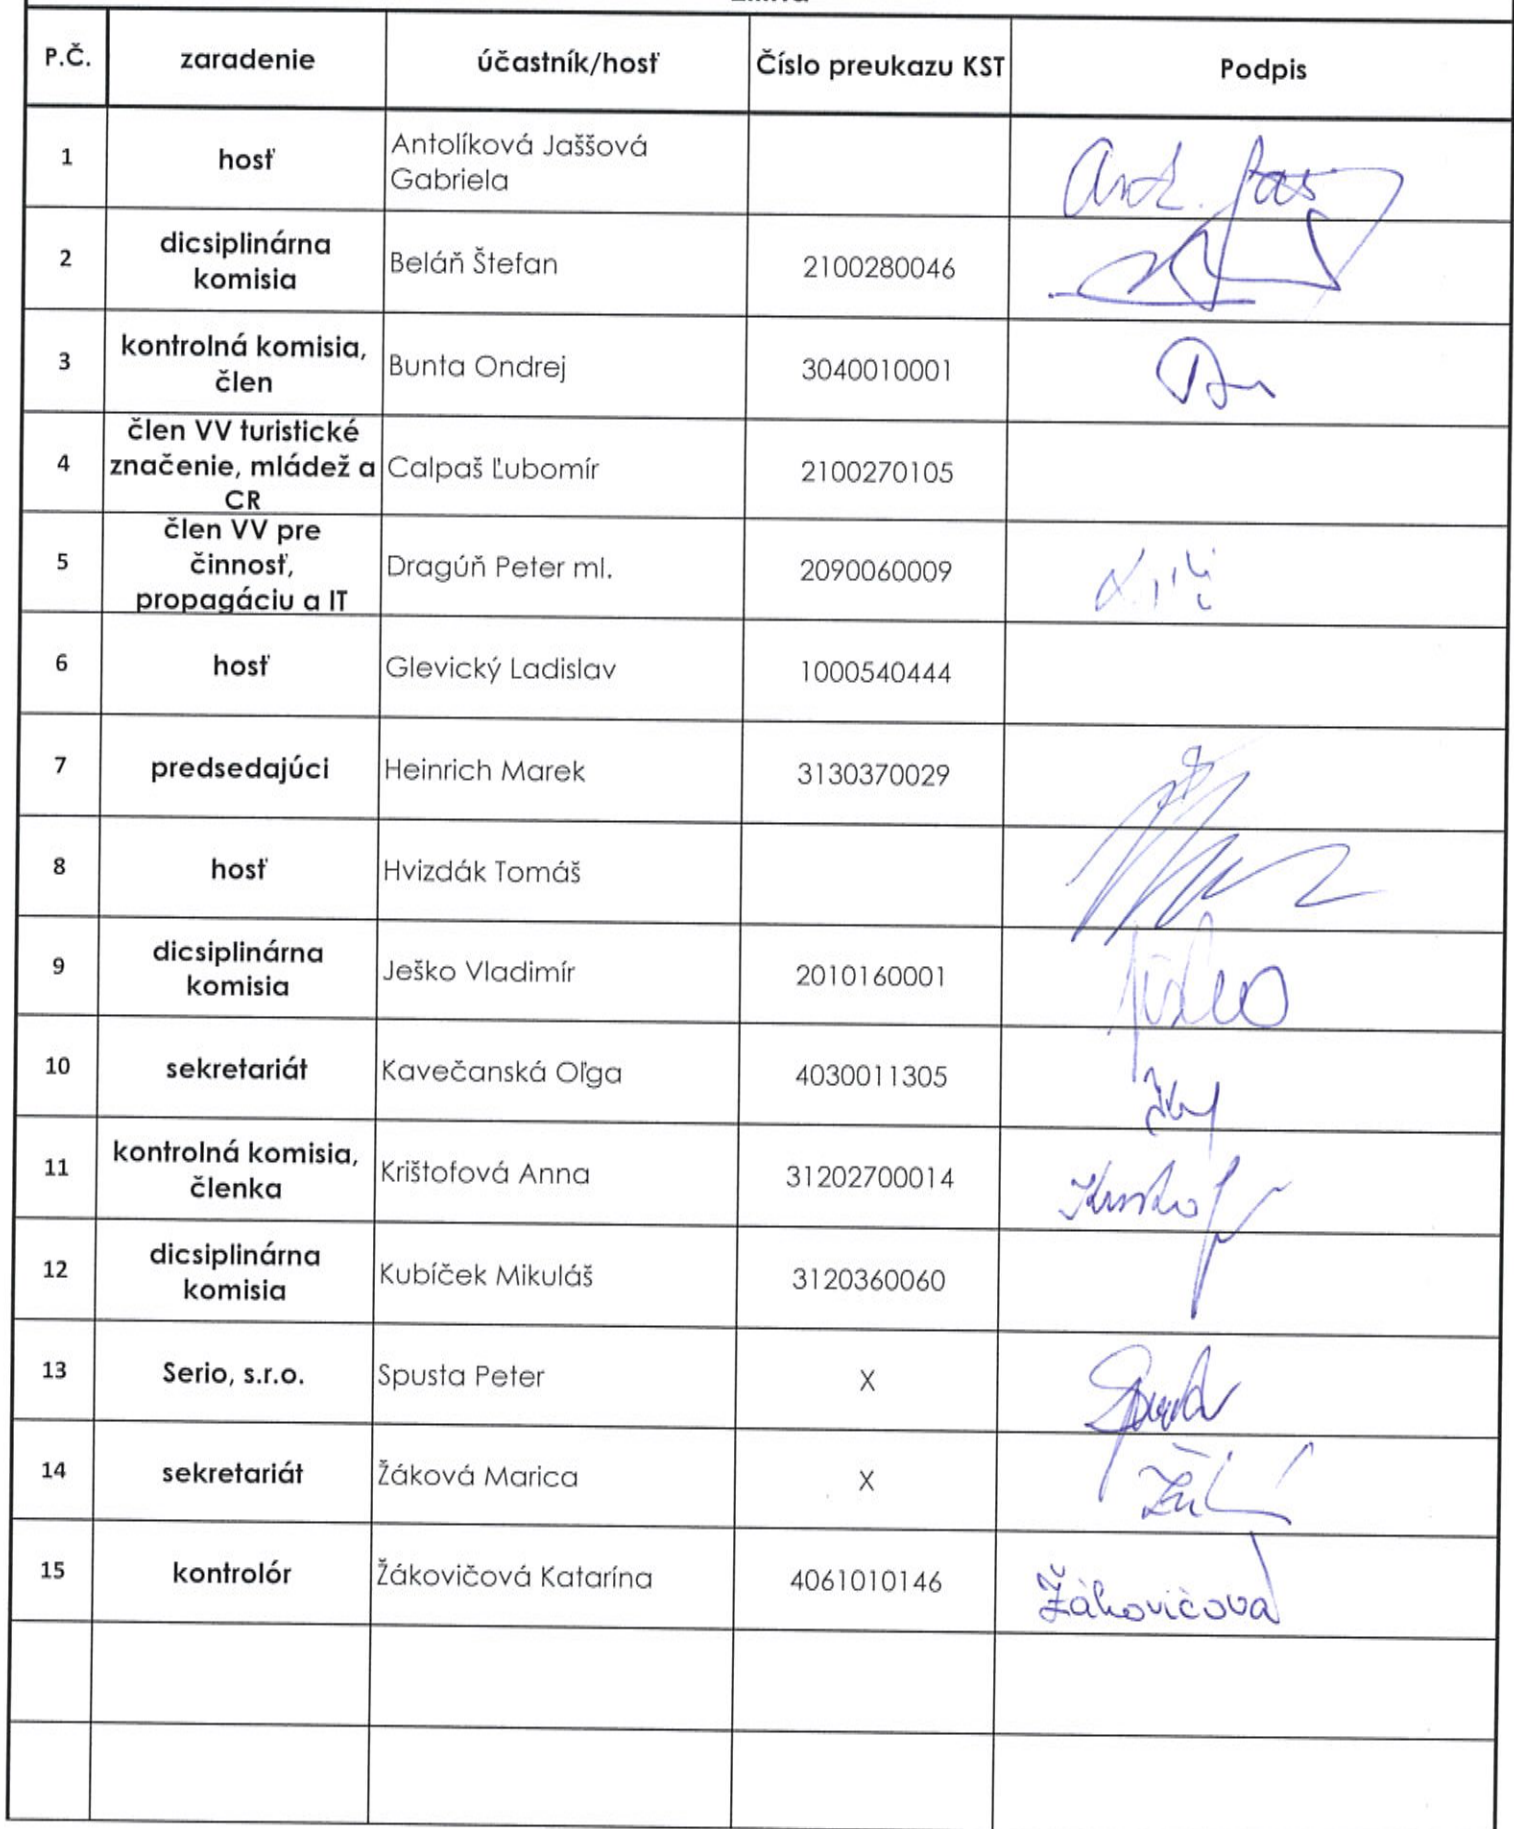 P.Č. zaradenie účastník/hosť Číslo preukazu KST Podpis
1 hosť Antolíková Jaššová
Gabriela
2 dicsiplinárna
komisia Beláň Štefan 2100280046
3 kontrolná komisia,
člen Bunta Ondrej 3040010001
4 člen VV turistické
značenie, mládež a
CR Calpaš Ľubomír 2100270105
5 člen VV pre
činnosť,
propagáciu a IT Dragúň Peter ml. 2090060009
6 hosť Glevický Ladislav 1000540444
7 predsedajúci Heinrich Marek 3130370029
8 hosť Hvizdák Tomáš
9 dicsiplinárna
komisia Ješko Vladimír 2010160001
10 sekretariát Kavečanská Oľga 4030011305
11 kontrolná komisia,
členka Krištofová Anna 31202700014
12 dicsiplinárna
komisia Kubíček Mikuláš 3120360060
13 Serio, s.r.o. Spusta Peter X
14 sekretariát Žáková Marica X
15 kontrolór Žákovičová Katarína 4061010146 Žákovičová